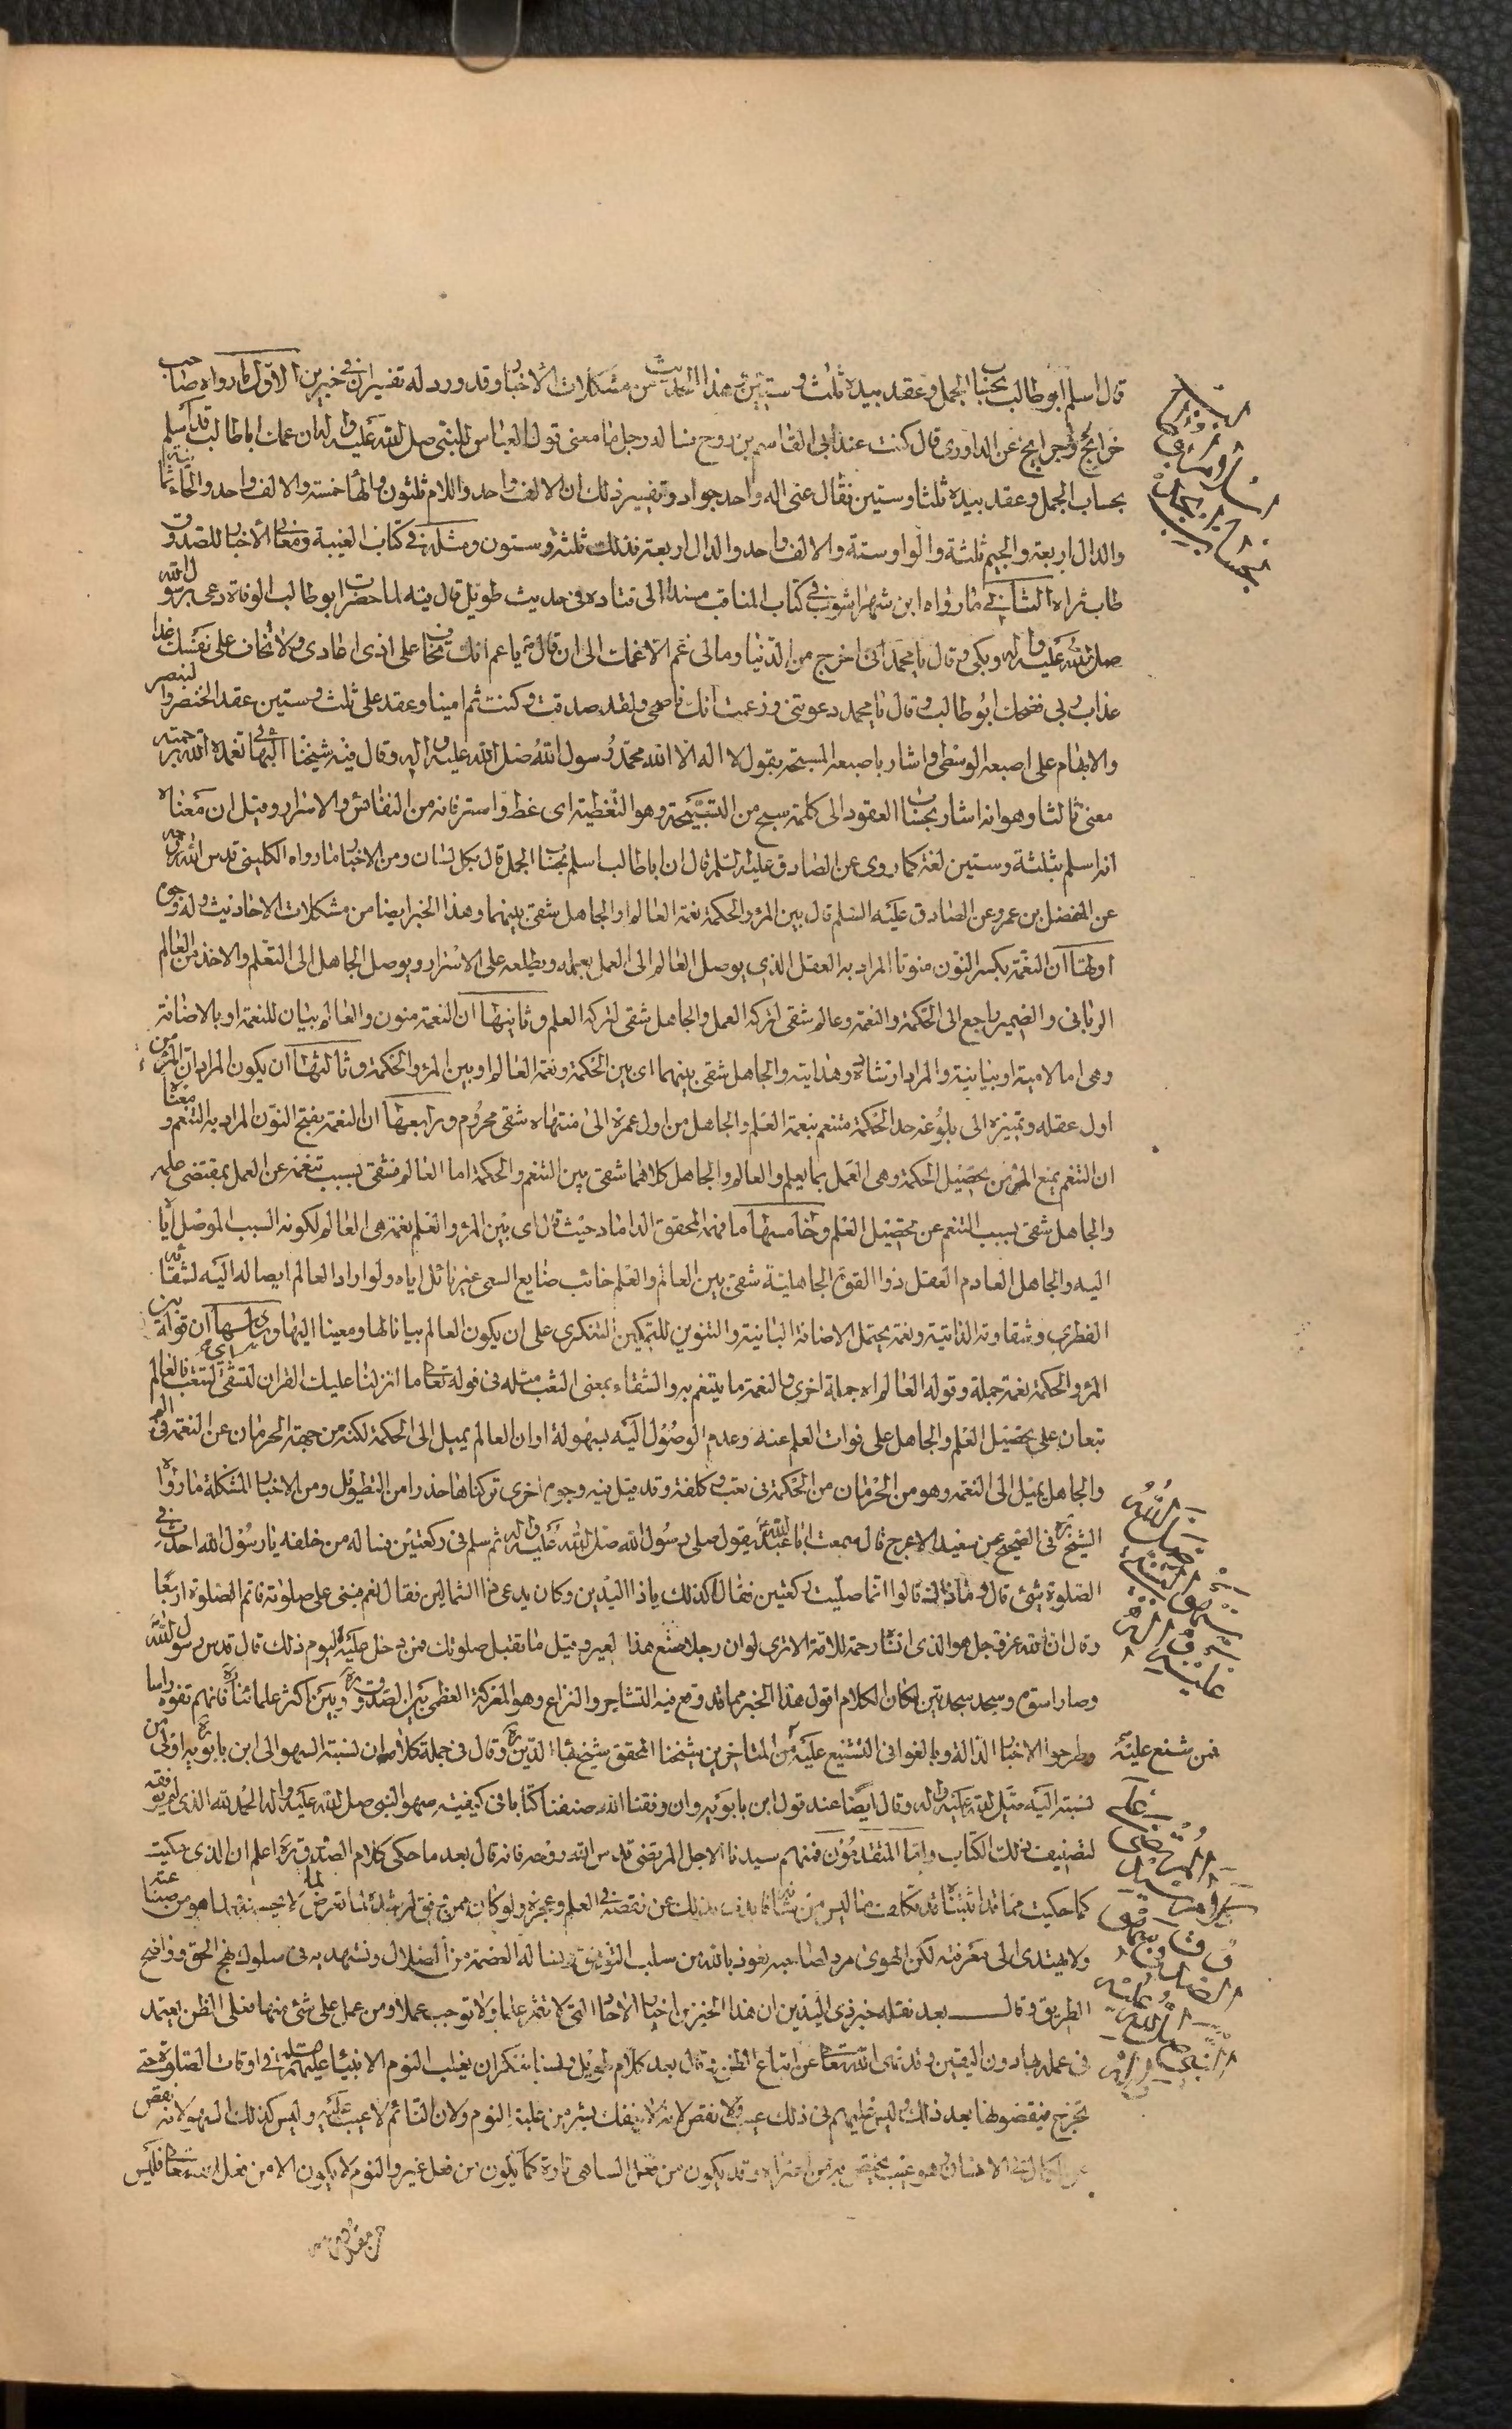 قال اسلم ابو طالب بحساب الجمل وعقد بيده ثلث وستين هذا الحديث من مشكلات الاخبار وقد ورد له تفسيران في خبرين الاول ما رواه صاحب
خرائج والجرايح عن الداودي قال كنت عند ابي القاسم بن روح فساله رجل ما معنى قول العباس للنبي صلى الله عليه واله ان عمك ابا طالب قد اسلم
بحساب الجمل وعقد بيده ثلثا وستين فقال عنى اله واحد جواد وتفسير ذلك ان الالف واحد واللام ثلثون والهاء خمسة والالف واحد والحاء ثمانية
والدال اربعة والجيم ثلثة والواو ستة والالف واحد والدال اربعة فذلك ثلثة وستون ومثله في كتاب الغيبة ومعاني الاخبار للصدوق
طاب ثراه الثاني ما رواه ابن شهراشوب في كتاب المناقب مسندا الى قتاده في حديث طويل قال فيه لما حضرت ابو طالب الوفاة دعى برسول الله
صلى الله عليه واله وبكى وقال يا محمد اني اخرج من الدنيا ومالى غم الا غمك الى ان قال ص يا عم انك تخاف على اذى اعادى ولا تخاف على نفسك غدا
عذاب ربى فضحك ابو طالب وقال يا محمد دعوتنى وزعمت انك ناصحى ولقد صدقت وكنت ثم امينا وعقد على ثلث وستين عقد الخنصر والبنصر
والابهام على اصبعه الوسطى واشار باصبعه المسبحة بقول لا اله الا الله محمد رسول الله صلى الله عليه واله وقال فيه شيخنا البهائى تغمده الله برحمته
معنى ثالثا وهو انه اشار بحساب العقود الى كلمة سبح من التسبيحة وهو التغطية اى غط واستر فانه من النفائس والاسرار وقيل ان معناه
انه اسلم بثلثة وستين لغة كما روى عن الصادق عليه السلم قال ان ابا طالب اسلم بحساب الجمل قال بكل لسان ومن الاخبار ما رواه الكلينى قدس الله روحه
عن المفضل بن عمر وعن الصادق عليه السلم قال بين المرء والحكمة نعمة العالم والجاهل شقى بينهما وهذا الخبر ايضا من مشكلات الاحاديث وله وجوه
اولها ان النعمة بكسر النون منونا المراد به العقل الذي يوصل العالم الى العمل بعلمه ويطلعه على الاسرار ويوصل الجاهل الى التعلم والاخذ من العالم
الرباني والضمير راجع الى الحكمة والنعمة وعالم شقى لتركه العمل والجاهل شقى لتركه العلم وثانيها ان النعمة منون والعالم بيان للنعمة او بالاضافة
وهى اما لامية او بيانية والمراد ارشاده وهدايته والجاهل شقى بينهما اى بين الحكمة ونعمة العالم او بين المرء والحكمة وثالثها ان يكون المراد ان المرء من
اول عقله وتميزه الى بلوغه حد الحكمة متنعم بنعمة العلم والجاهل من اول عمره الى منتهاه شقى محروم ورابعها ان النعمة بفتح النون المراد به التنعم ومعناه
ان التنعم يمنع المرء من تحصيل الحكمة وهى العمل بما يعلم والعالم والجاهل كلاهما شقى بين التنعم والحكمة اما العالم فشقى بسبب تنعمه عن العمل بمقتضى علمه
والجاهل شقى بسبب التنعم عن تحصيل العلم وخامسها ما فهمه المحقق الداماد حيث قال اى بين المرء والعلم نعمة هى العالم لكونه السبب الموصل اياه
اليه والجاهل العادم العقل ذوا القوة الجاهلية شقى بين العالم والعلم خائب ضايع السعى غير نائل اياه ولو اراد العالم ايصاله اليه لشقائه
الفطرى وشقاوته الذاتية ونعمة يحتمل الاضافة البيانية والتنوين للتمكين التنكرى على ان يكون العالم بيانا لها ومعينا اليها وسادسها ان قوله بين
المرء والحكمة نعمة جملة وقوله العالم اه جملة اخرى والنعمة ما يتنعم به والشقاء بمعنى التعب مثله فى قوله تعا ما انزلنا عليك القران لتشقى اي لتتعب فالعالم
تبعان على تحصيل العلم والجاهل على فوات العلم عنه وعدم الوصول اليه بسهولة او ان العالم يميل الى الحكمة لكنه من جهة الحرمان عن النعمة في الم
والجاهل يميل الى النعمة وهو من الحرمان من الحكمة فى تعب وكلفة وقد قيل فيه وجوه اخرى تركناها حذرا من التطويل ومن الاخبار المشكلة ما رواه
الشيخ ره فى الصحيح عن سعيد الاعرج قال سمعت ابا عبد الله ع يقول صلى رسول الله صلى الله عليه واله ثم سلم فى ركعتين فساله من خلفه يا رسول الله احدث في
الصلوة شئ قال وما ذلك قالوا انما صليت ركعتين فقال اكذلك يا ذا اليدين وكان يدعى ذا الشمالين فقال نعم فبنى على صلوته فاتم الصلوة اربعا
وقال ان الله عز وجل هو الذى انساه رحمة للامة الا ترى لو ان رجلا صنع هذا لعير وقيل ما تقبل صلوتك فمن دخل عليه اليوم ذلك قال قد سن رسول الله
وصار اسوة وسجد سجدتين لمكان الكلام اقول هذا الخبر مما قد وقع فيه التشاجر والنزاع وهو المعركة العظمى بين الصدوق ره وبين اكثر علمائنا ره فانهم نفوه راسا
وطرحوا الاخبار الدالة وبالغوا فى التشنيع عليه فمن شنع عليه من المتاخرين شيخنا المحقق شيخ بهاء الدين ره وقال فى جملة كلامه ان نسبة السهو الى ابن بابويه اولى من
نسبته اليه صلى الله عليه واله وقال ايضا عند قول ابن بابويه وان وفقنا الله صنفنا كتابا فى كيفية سهو النبى صلى الله عليه واله الحمد لله الذى لم يوفقه
لتصنيف ذلك الكتاب واما المتقدمون فمنهم سيدنا الاجل المرتضى قدس الله روحه فانه قال بعد ما حكى كلام الصدوق ره اعلم ان الذى حكيت
كما حكيت مما قد اثبتناه قد تكلف ما ليس من شانه فابدى بذلك عن نقصه في العلم وعجزه ولو كان ممن وفق لرشده لما تعرض لما لا يحسنه ولا هو من صناعته
ولا يهتدى الى معرفته لكن الهوى مرد لصاحبه نعوذ بالله من سلب التوفيق ونساله العصمة من الضلال ونستهديه فى سلوك نهج الحق وواضح
الطريق وقال بعد نقله خبر ذى اليدين ان هذا الخبر من اخبار الاحاد التى لا تثمر علما ولا توجب عملا ومن عمل على شئ منها فعلى الظن يعتمد
فى عمله بها دون اليقين وقد نهى الله تعا عن اتباع الظن ثم قال بعد كلام طويل ولسنا ننكر ان يغلب النوم الانبياء عليهم السلم في اوقات الصلوة حتى
يخرج فيقضوها بعد ذلك وليس عليهم فى ذلك عيب ولا نقص لانه لا ينفك بشر من غلبة النوم ولان النائم لا عيب عليه وليس كذلك السهو لانه نقص
عن الكمال في الانسان وهو عيب يختص به من اعتراه وقد يكون من فعل الساهى تارة كما يكون من فعل غيره والنوم لا يكون الا من فعل الله تعا فليس
من مقدور